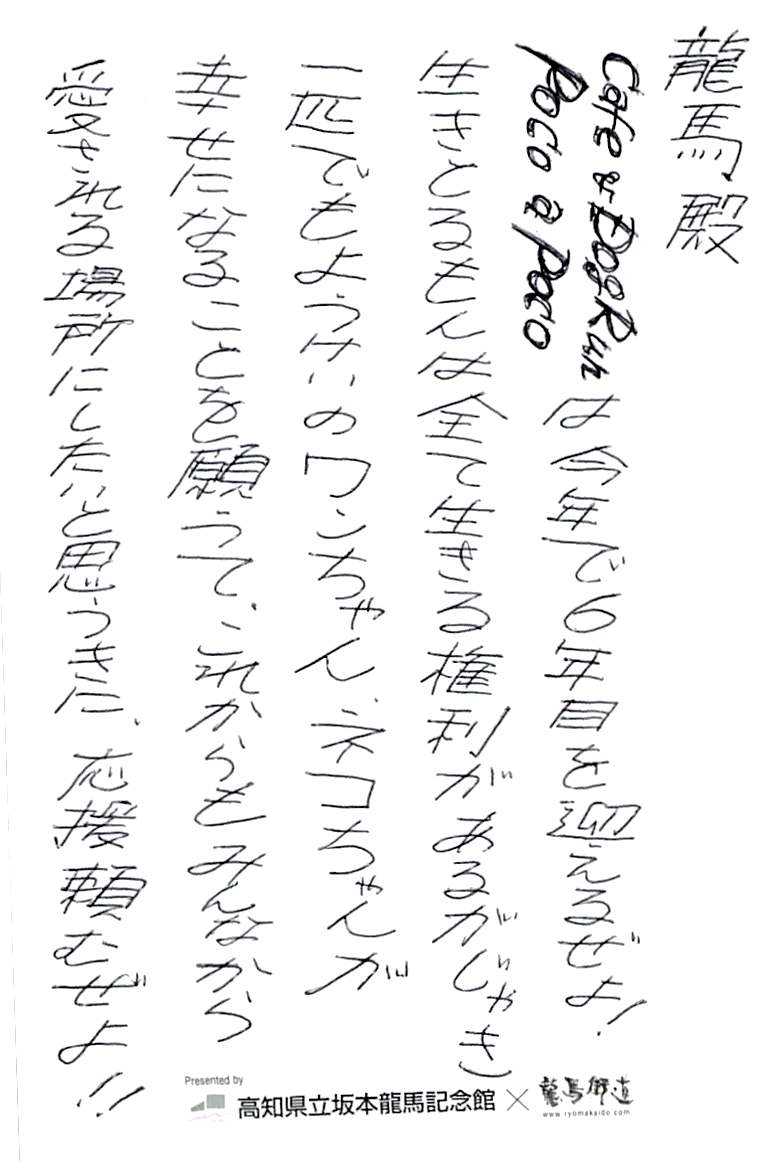 龍馬殿
Cafe & Dog Run
Poco a Pocoは今年で6年目を迎えるぜよ!
生きとるもんは全て生きる権利があるがじゃき)
一匹でもようけいのワンちゃん、ネコちゃんが
幸せになることを願うて、これからもみんなから
愛される場所にしたいと思うきに、応援頼むぜよ!!
Presented by
高知県立坂本龍馬記念館×龍馬街道
www.ryomakaido.com